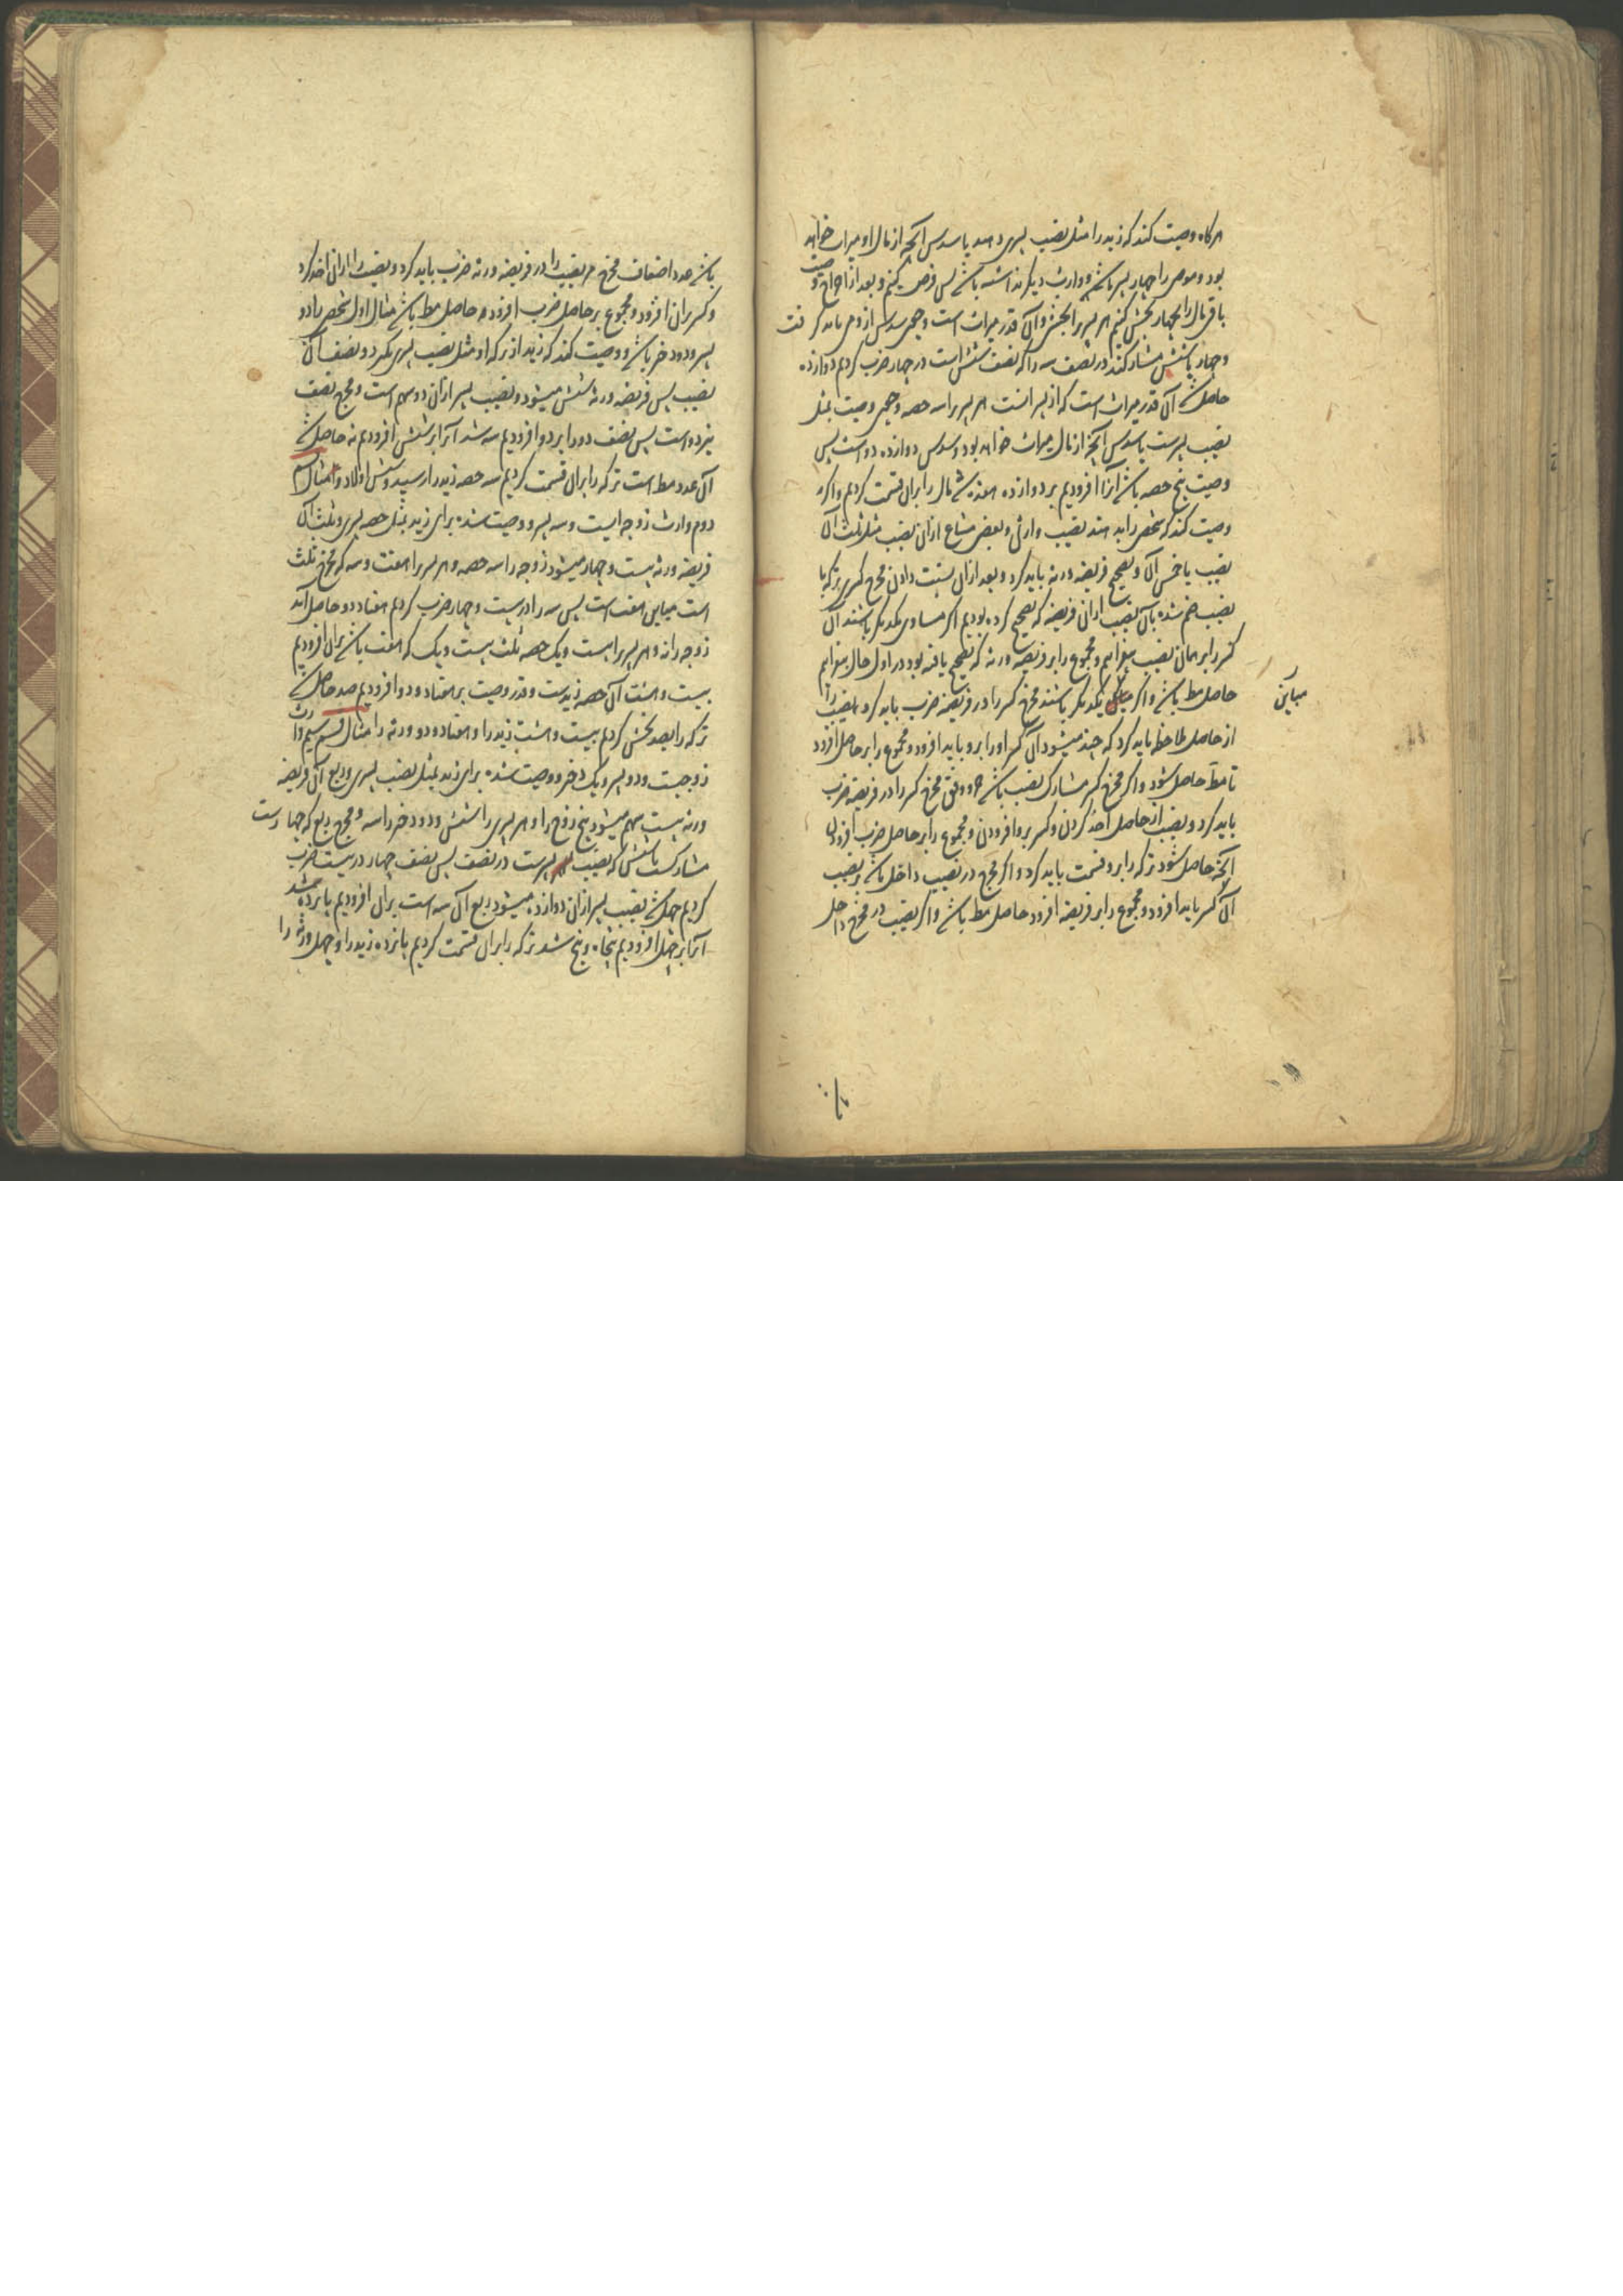 هرکاه وصیت کند که زید را مثل نصیب پسری دهند یا سدس آنچه از مال او میراث خواهد
بود و موصی را چهار پسر باشد و وارث دیکر نداشته باشد پس فرض کنیم و بعد از اخراج وصیت
باقی مال را بچهار بخش کنیم هر پسر را بخشی و آن قدر میراث است و مخرج سدس از و می باید کرفت
و چهار با شش مشارکند در نصف سه را که نصف شش است در چهار ضرب کردیم دوازده
حاصل شد آن قدر میراث است که از پسرانست هر پسر را سه حصه و چون وصیت بمثل
نصیب پسرست با سدس آنچه از مال میراث خواهد بود و سدس دوازده دو است پس
وصیت پنج حصه باشد آنرا افزودیم بر دوازده هفده شد مال را بران قسمت کردیم و اکر
وصیت کند که شخصی را بدهند نصیب وارثی و بعضی مشاع ازان نصیب مثل ثلث آن
نصیب یا خمس آن و تصحیح فریضه ورثه باید کرد و بعد ازان نسبت دادن مخرج کسری که با
نصیب ضم شده بآن نصیب ازان فریضه که تصحیح کرده بودیم اکر مساوی یکدیکر باشند آن
کسر را بر همان نصیب بیفزاییم و مجموع را بر فریضه ورثه که تصحیح یافته بود در اول حال بیفزاییم
حاصل مط باشد و اکر مباین یکدیکر باشند مخرج کسر را در فریضه ضرب باید کرد و نصیب را
مباین
از حاصل ملاحظه باید کرد که چند میشود آن کسر او را برو باید افزود و مجموع را بر حاصل افزود
تا مط حاصل شود و اکر مخرج کسر مشارک نصیب باشد جزو وفق مخرج کسر را در فریضه ضرب
باید کرد و نصیب از حاصل اخذ کردن و کسر برو افزودن و مجموع را بر حاصل ضرب افزودن
آنچه حاصل شود ترکه را برو قسمت باید کرد و اکر مخرج در نصیب داخل باشد بر نصیب
آن کسر باید افزود و مجموع را بر فریضه افزود حاصل مط باشد و اکر نصیب در مخرج داخل
باشد عدد اضعاف مخرج مر نصیب را در فریضه ورثه ضرب باید کرد و نصیب را ازان اخذ کرد
و کسر بران افزود و مجموع بر حاصل ضرب افزود حاصل مط باشد مثال اول شخصی را دو
پسر و دو دختر باشد و وصیت کند که زید از ترکه او مثل نصیب پسری بکیرد و نصف آن
نصیب پس فریضه ورثه شش میشود و نصیب پسر ازان دو سهم است و مخرج نصف
نیز دو است پس نصف دو را بر دو افزودیم سه شد آنرا بر شش افزودیم نه حاصل شد
آن عدد مط است ترکه را بران قسمت کردیم سه حصه زید را رسید و شش اولاد را مثال
دوم وارث زوجه ایست و سه پسر و وصیت شده برای زید بمثل حصه پسری و ثلث آن
فریضه ورثه بیست و چهار میشود زوجه را سه حصه و هر پسر را هفت و سه که مخرج ثلث
است مباین هفت است پس سه را در بیست و چهار ضرب کردیم هفتاد و دو حاصل آمد
زوجه را نه و هر پسر را بیست و یک حصه ثلث بیست و یک که هفت باشد بران افزودیم
بیست و هشت آن حصه زیدست و قدر وصیت بر هفتاد و دو افزودیم صد حاصل شد
ترکه را بصد بخش کردیم بیست و هشت زید را و هفتاد و دو ورثه را مثال سیم وارث
زوجست و دو پسر و یک دختر و وصیت شده برای زید بمثل نصیب پسری و ربع آن فریضه
ورثه بیست سهم میشود پنج زوج را و هر پسری را شش و دختر را سه و مخرج ربع که چهارست
مشارکست با شش که نصیب پسرست در نصف پس نصف چهار در بیست ضرب
کردیم چهل شد نصیب پسر ازان دوازده میشود ربع آن سه است بران افزودیم پانزده شد
آنرا بر چهل افزودیم پنجاه و پنج شد ترکه را بران قسمت کردیم پانزده زید را و چهل ورثه را